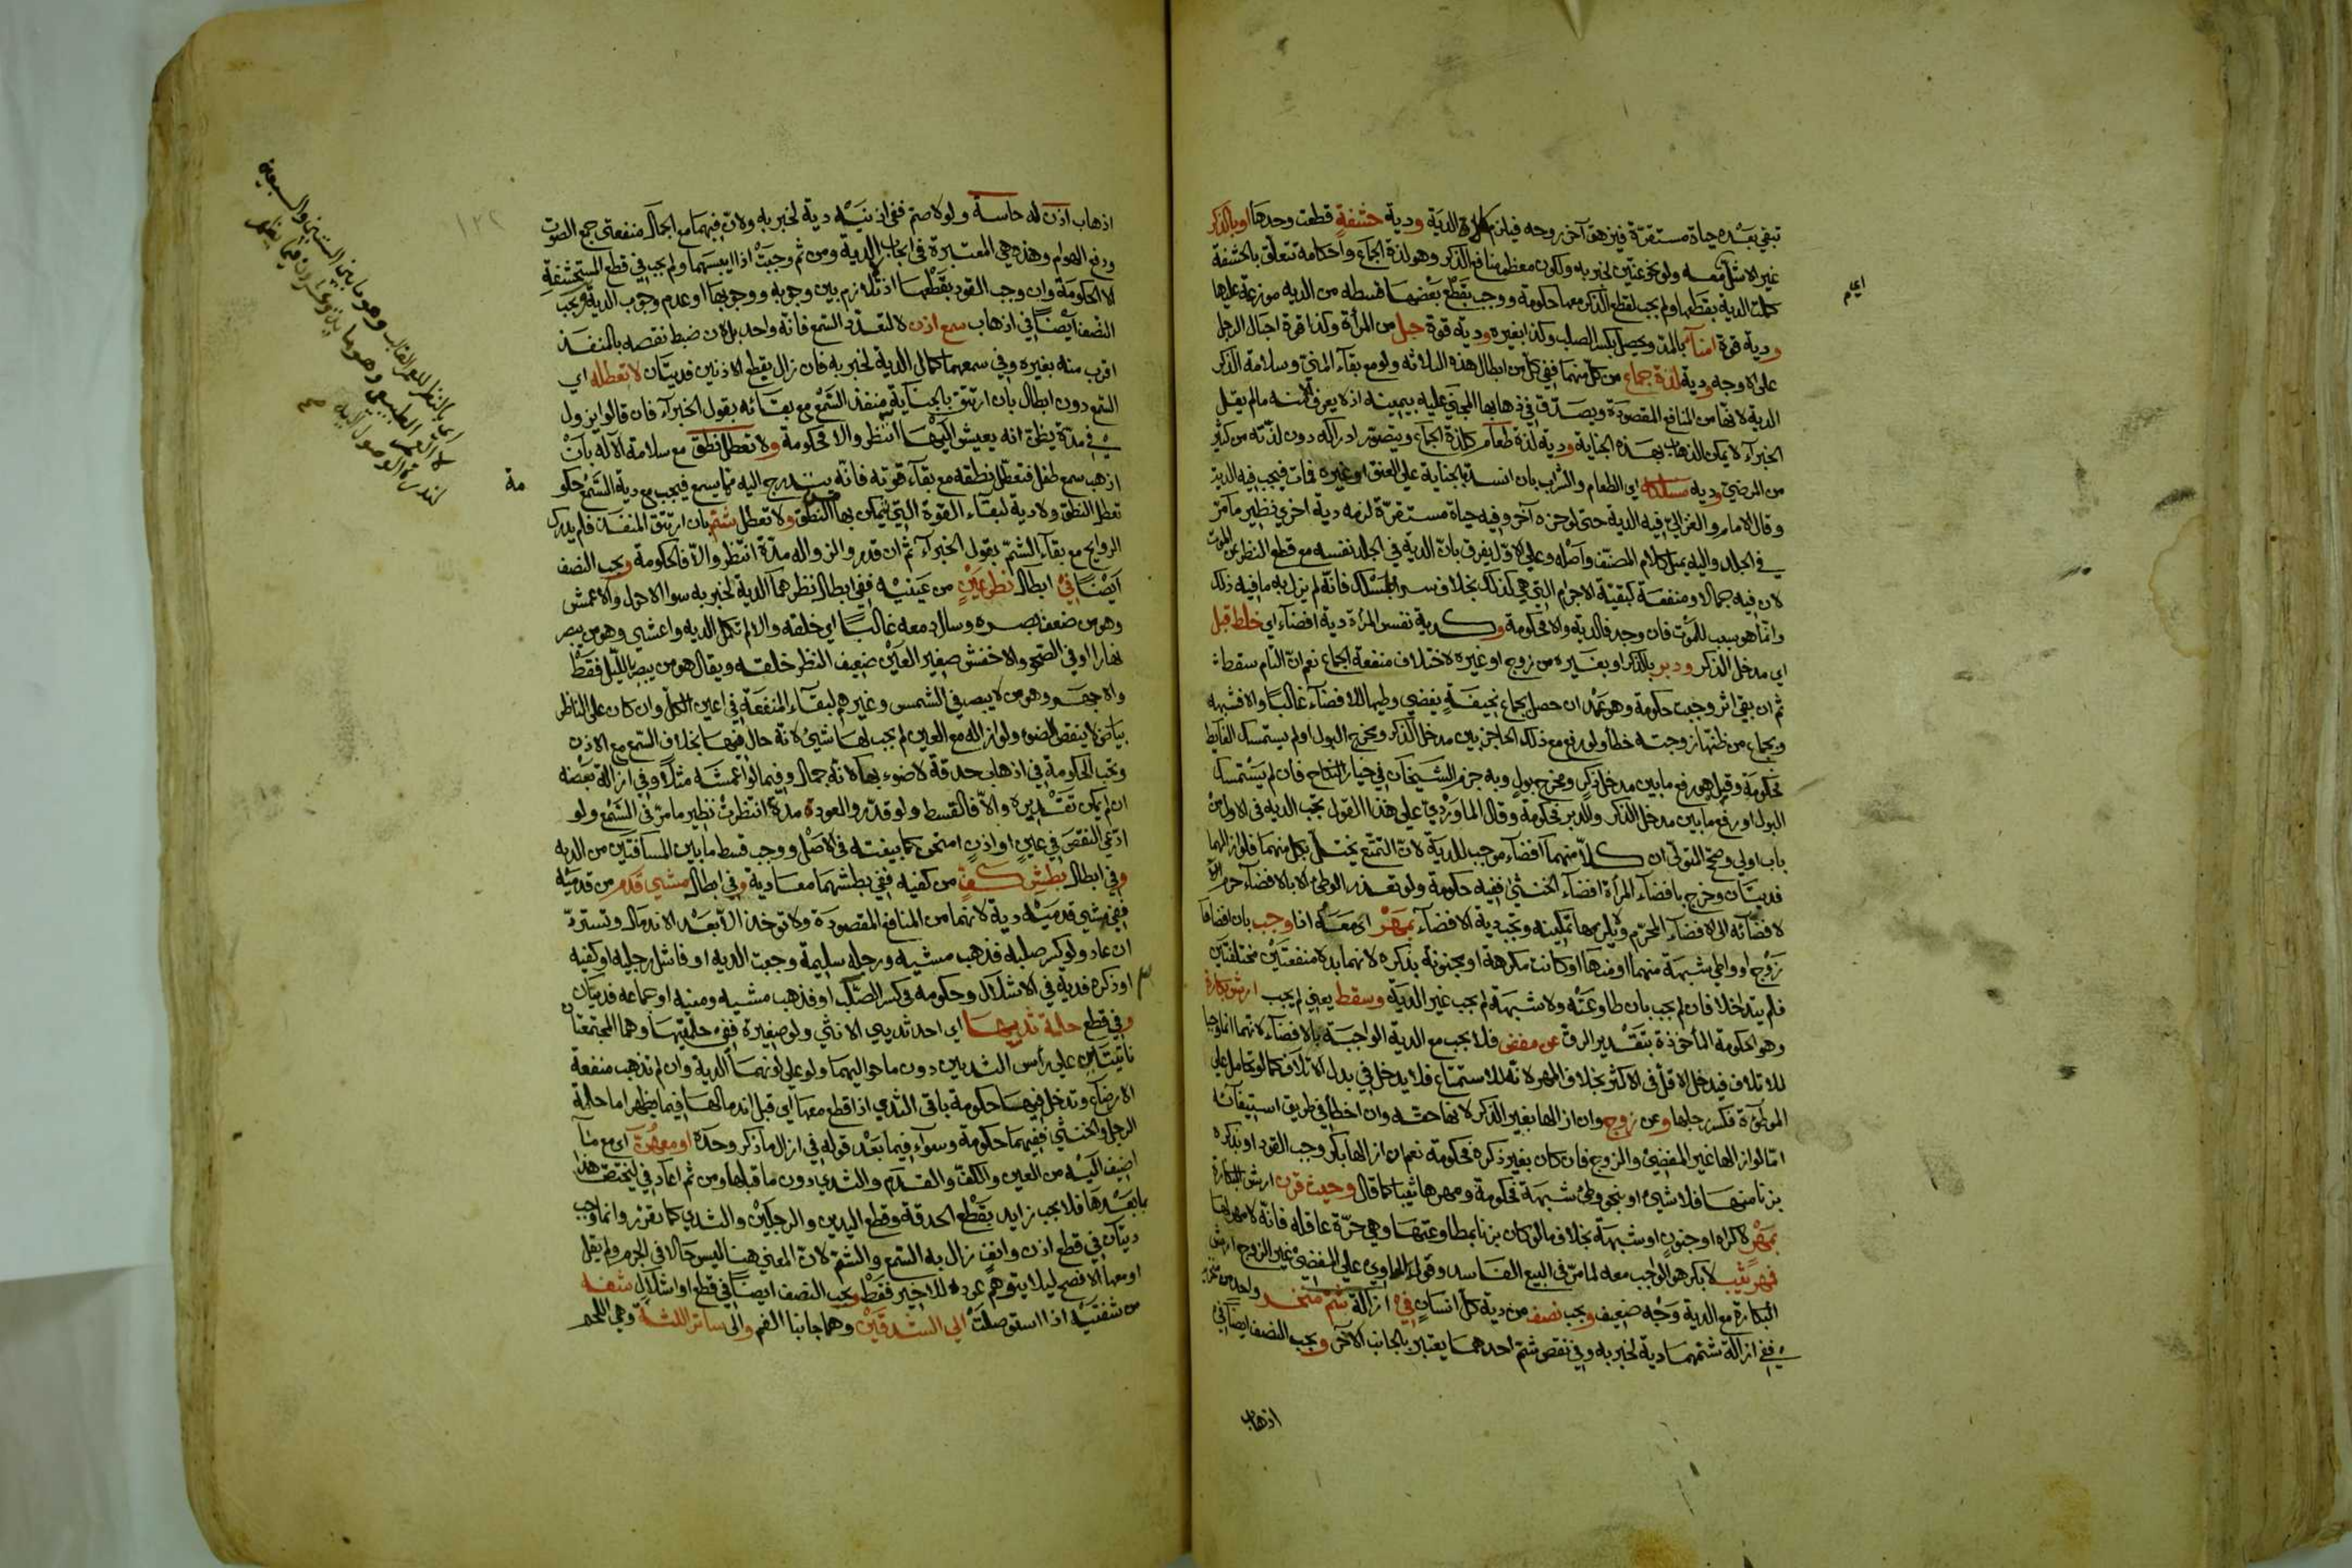 تبقي بعده حياة مستقرة فيزهق آخر روحه فيلزم الدية ودية حشفة قطعت وحدها او بالذكر
غير الاشل معه ولو نحو عنين لخبر به ولكون معظم منافع الذكر وهو لذة الجماع واحكامه تتعلق بالحشفة
كملت الدية بقطعها ولم يجب لقطع الذكر معها حكومة ووجب بقطع بعضها قسطه من الديه موزعة عليها
ودية قوة امناء بالمد ويحصل بكسر الصلب وكذا بغيره ودية قوة حبل من المرأة وكذا قوة احبال الرجل
على الاوجه ودية لذة جماع من كل منهما ففي كل من ابطال هذه الثلاثه ولو مع بقاء المني وسلامة الذكر
الدية لانها من المنافع المقصودة ويصدق في ذهابها المجني عليه بيمينه اذ لا يعرف الا منه مالم يقل
الخبراء لا يمكن الذهاب بهذه الجناية ودية لذة طعام كلذة الجماع ويتصور ادراكه دون لذته من كثير
من المرضي ودية مسلكه اي الطعام والشراب بان انسد بالجناية على العنق او غيره فمات فيجب فيه الدية
وقال الامام والغزالي فيه الدية حتى لو حزه آخر وفيه حياة مستقرة لزمه دية اخري نظير ما مر
في الجلد واليه يميل كلام المصنف واصله وعلى الاول يفرق بان الدية في الجلد نفسه مع قطع النظر عن الموت
لان فيه جمالا ومنفعة كبقية الاجرام التي هي كذلك بخلاف سد المسلك فانه لم يزل به ما فيه ذلك
وانما هو سبب للموت فان وجد فالدية والا فحكومة وكدية نفس المرأة دية افضاء اي خلط قبل
اي مدخل الذكر ودبر بالذكر او بغيره من زوج او غيره لاختلاف منفعة الجماع نعم ان التام سقطت
ثم ان بقي اثر وجبت حكومة وهو عمد ان حصل بجماع نحيفة يفضي وطيها للافضاء غالبا والا فشبهه
وبجماع من ظنها زوجته خطأ ولو رفع مع ذلك الحاجز بين مدخل الذكر ومخرج البول او لم يستمسك الغايط
فحكومة وقيل هو رفع ما بين مدخل ذكر ومخرج بول وبه جزم الشيخان في خيار النكاح فان لم يستمسك
البول او رفع ما بين مدخل الذكر والدبر فحكومة وقال الماوردي على هذا القول تجب الدية في الاول من
باب اولي وصحح المتولي ان كلا منهما افضاء موجب للدية لان التمتع يختل بكل منهما فلو ازالهما
فديتان وخرج بافضاء المرأة افضاء الخنثى ففيه حكومة ولو تعذر الوطي الا بالافضاء حرم
لافضائه الى الافضاء المحرم ولا يلزمها تمكينه وتجب دية الافضاء بمهر اي معه اذا وجب بان افضاها
زوج او واطي بشبهة منهما او منها او كانت مكرهة او مجنونة بذكره لانهما بدلا منفعتين مختلفتين
فلم يتداخلا فان لم يجب بان طاوعته ولا شبهة لم يجب غير الدية وسقط يعني لم يجب ارش بكارة
وهو الحكومة المأخوذة بتقدير الرق عن مفض فلا يجب مع الدية الواجبة بالافضاء لانهما انما وجبا
للاتلاف فيدخل الاقل في الاكثر بخلاف المهر لانه للاستمتاع فلا يدخل في بدل الاتلاف كما لو تحامل على
الموطؤة فكسر رجلها وعن زوج وان ازالها بغير الذكر لانها حقه وان اخطأ في طريق استيفائه
اما لو ازالها غير المفضي والزوج فان كان بغير ذكره فحكومة نعم ان ازالها بكر وجب القود او بذكره
بزنا منها فلا شيء او بنحو وطي شبهة فحكومة ومهرها ثيبا كما قال وحيث قرن ارش البكارة
بمهر لاكراه او جنون او شبهة بخلاف ما لو كان بزنا بمطاوعتها وهي حرة عاقلة فانه لا مهر لها
فمهر ثيب لا بكر هو الواجب معه لما مر في البيع الفاسد وقول الحاوي على المفضي غير الزوج ارش
البكارة مع الدية وجه ضعيف ويجب نصف من دية كل انسان في ازالة شم منخر واحد من منخريه
ففي ازالة شمهما دية لخبر به وفي نقص شم احدهما يعتبر بالجانب الآخر ويجب النصف ايضا في
اذهاب
اذهاب اذن له حاسة ولو لاصم ففي اذنيه دية لخبر به ولان فيهما مع الجمال منفعتي جمع الصوت
ودفع الهوام وهذه هي المعتبرة في ايجاب الدية ومن ثم وجبت اذا ايبسهما ولم يجب في قطع المستحشفة
الا الحكومة وان وجب القود بقطعها اذ لا تلازم بين وجوبه ووجوبها او عدم وجوب الدية ويجب
النصف ايضا في اذهاب سمع اذن لا لتعدد السمع فانه واحد بل لان ضبط نقصه بالمنفذ
اقرب منه بغيره وفي سمعهما كمال الدية لخبر به فان زال بقطع الاذنين فديتان لا تعطله اي
السمع دون ابطال بان ارتتق بالجناية منفذ السمع مع بقائه بقول الخبراء فان قالوا يزول
في مدة يظن انه يعيش اليها انتظر والا فحكومة ولا تعطل نطق مع سلامة الآلة بان
اذهب سمع طفل فتعطل نطقه مع بقاء قوته فانه يتدرج اليه مما يسمع فيجب مع دية السمع حكو
مة
تعطل النطق ولا دية لبقاء القوة التي يمكن بها النطق ولا تعطل شم بان ارتتق المنفذ فلم يدرك
الروايح مع بقاء الشم بقول الخبراء ثم ان قدروا لزواله مدة انتظر والا فالحكومة ويجب النصف
ايضا في ابطال نظر عين من عينيه ففي ابطال نظرهما الدية لخبر به سوا الاحول والاعمش
وهو من ضعف بصره وسال دمعه غالبا اي خلقه والا لم تكمل الدية واعشى وهو من يبصر
نهارا او في الصحو والاخفش صغير العين ضعيف النظر خلقة ويقال هو من يبصر بالليل فقط
والاجهر وهو من لا يبصر في الشمس وغيرهم لبقاء المنفعة في اعين الكل وان كان على الناظر
بياض لا ينقص الضوء ولو ازاله مع العين لم يجب لها شيء لانه حال فيها بخلاف السمع مع الاذن
وتجب الحكومة في اذهاب حدقة لا ضوء بها لانه جمال وفيما لو اعمشه مثلا وفي ازالة بعضه
ان لم يمكن تقديره والا فالقسط ولو قدروا لعوده مدة انتظرت نظير ما مر في السمع ولو
ادعي النقص في عين او اذن امتحن كما بينته في الاصل ووجب قسط ما بين المسافتين من الدية
وفي ابطال بطش كف من كفيه ففي بطشهما معا دية وفي ابطال مشي قدم من قدميه
ففي مشي قدميه دية لانهما من المنافع المقصودة ولا توخذ الا بعد الاندمال وتسترد
ان عاد ولو كسر صلبه فذهب مشيه ورجله سليمة وجبت الديه او فاشل رجليه او كفيه
او ذكره فدية في الاشلال وحكومة في كسر الصلب او فذهب مشيه ومنيه او جماعه فديتان
وفي قطع حلمة ثديها اي احد ثديي الانثى ولو صغيرة ففي حلمتيها وهما المجتمعتان
ناتئتين على رأس الثديين دون ما حواليهما ولو على لونهما الدية وان لم تذهب منفعة
الارضاع وتدخل فيها حكومة باقي الثدي اذا قطع معها اي قبل اندمالها فيما يظهر اما حلمة
الرجل والخنثى ففيهما حكومة وسواء فيما بعد قوله في ازال ما ذكر وحده او معها اي مع ما
اضيف اليه من العين والكف والقدم والثدي دون ما قبلها ومن ثم اعاد في ليختص هذا
بما بعدها فلا يجب زايد بقطع الحدقة وقطع اليدين والرجلين والثدي كما تقرر وانما وجب
ديتان في قطع اذن وانف زال به السمع والشم لان المعني هنا ليس حالا في الجرم ولم يقل
او معها الافصح ليلا يتوهم عوده للاخير فقط ويجب النصف ايضا في قطع او اشلال شفه
من شفتيه اذا استوصلت الى الشدقين وهما جانبا الفم والى ساتر اللثة وهي اللحم